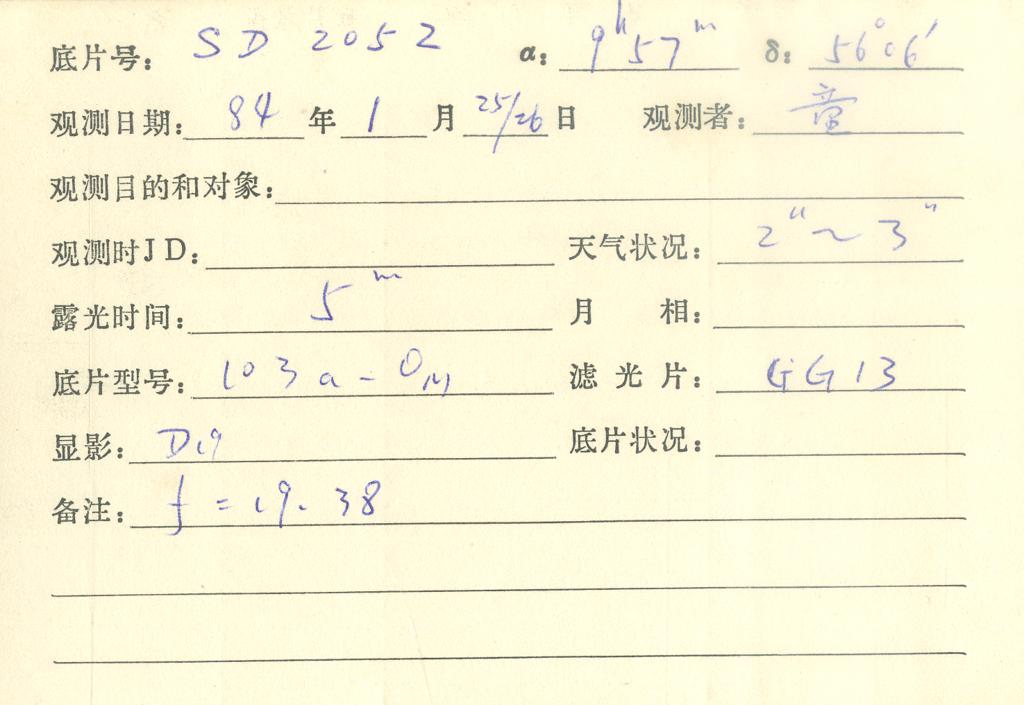 底片号： SD 2052 α： 9h57m δ： 56°06′
观测日期： 84 年 1 月 25/26 日 观测者： 童
观测目的和对象：
观测时JD： 天气状况： 2"～3"
露光时间： 5m 月 相：
底片型号： 103a-OM 滤光片： GG13
显影： D19 底片状况：
备注： f=19.38